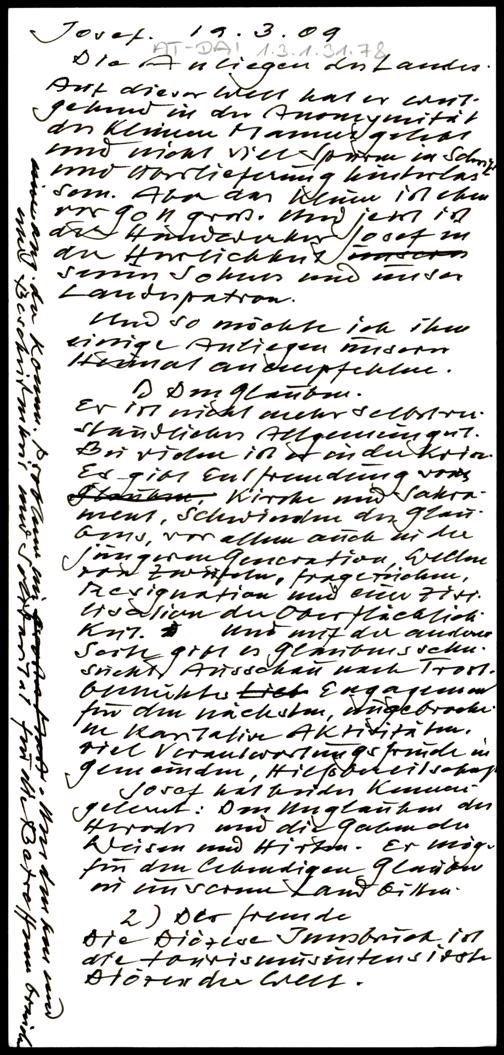 Josef. 19.3.09
AT-DA! 1.3.1.31.78
Die Anliegen des Landes.
Auf dieser Welt hat er weit-
gehend in der Anonymität
des kleinen Mannes gelebt
und nicht viel Spuren in Schrift
und Überlieferung hinterlas
sen. Aber das Kleine ist eben
vor Gott gross. Und jetzt ist
der Handwerker Josef in
der Herrlichkeit unseres
seines Sohnes und unser
Landespatron.
Und so möchte ich ihm
einige Anliegen unserer
Heimat anempfehlen.
1) Den Glauben.
Er ist nicht mehr selbstver-
ständliches Allgemeingut.
Bei vielen ist er in der Krise.
Es gibt Entfremdung vom
Glauben. Kirche und Sakra-
ment, Schwinden des Glau-
bens, vor allem auch in der
jüngeren Generation, Wellen
von Zweifeln, Fragezeichen,
Resignation und eine Zivi-
lisation der Oberflächlich-
keit. Und auf der anderen
Seite gibt es Glaubenssehn-
sucht, Ausschau nach Trost.
bemühtes Lieb Engagement
für den nächsten, ungebroche-
ne karitative Aktivitäten.
viel Verantwortungsfreude in
Gemeinden, Hilfsbereitschaft
Josef hat beides kennen
gelernt: Den Unglauben des
Herodes und die Gaben der
Weisen und Hirten. Er möge
für den lebendigen Glauben
in unserem Land bitten.
2) Der Fremde
Die Diözese Innsbruck ist
die tourismusintensivste
Diözese der Welt.
und